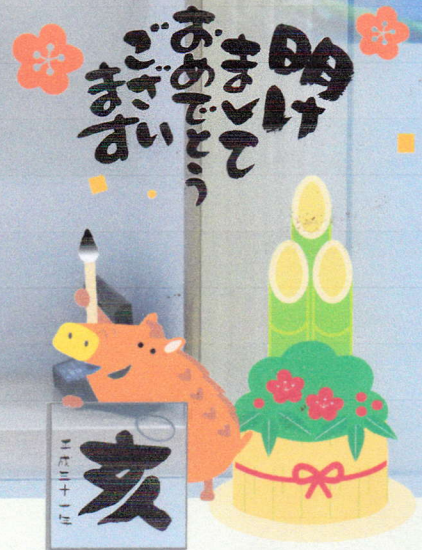 明け
まして
おめでとう
ござい
ます
亥
平成三十一年